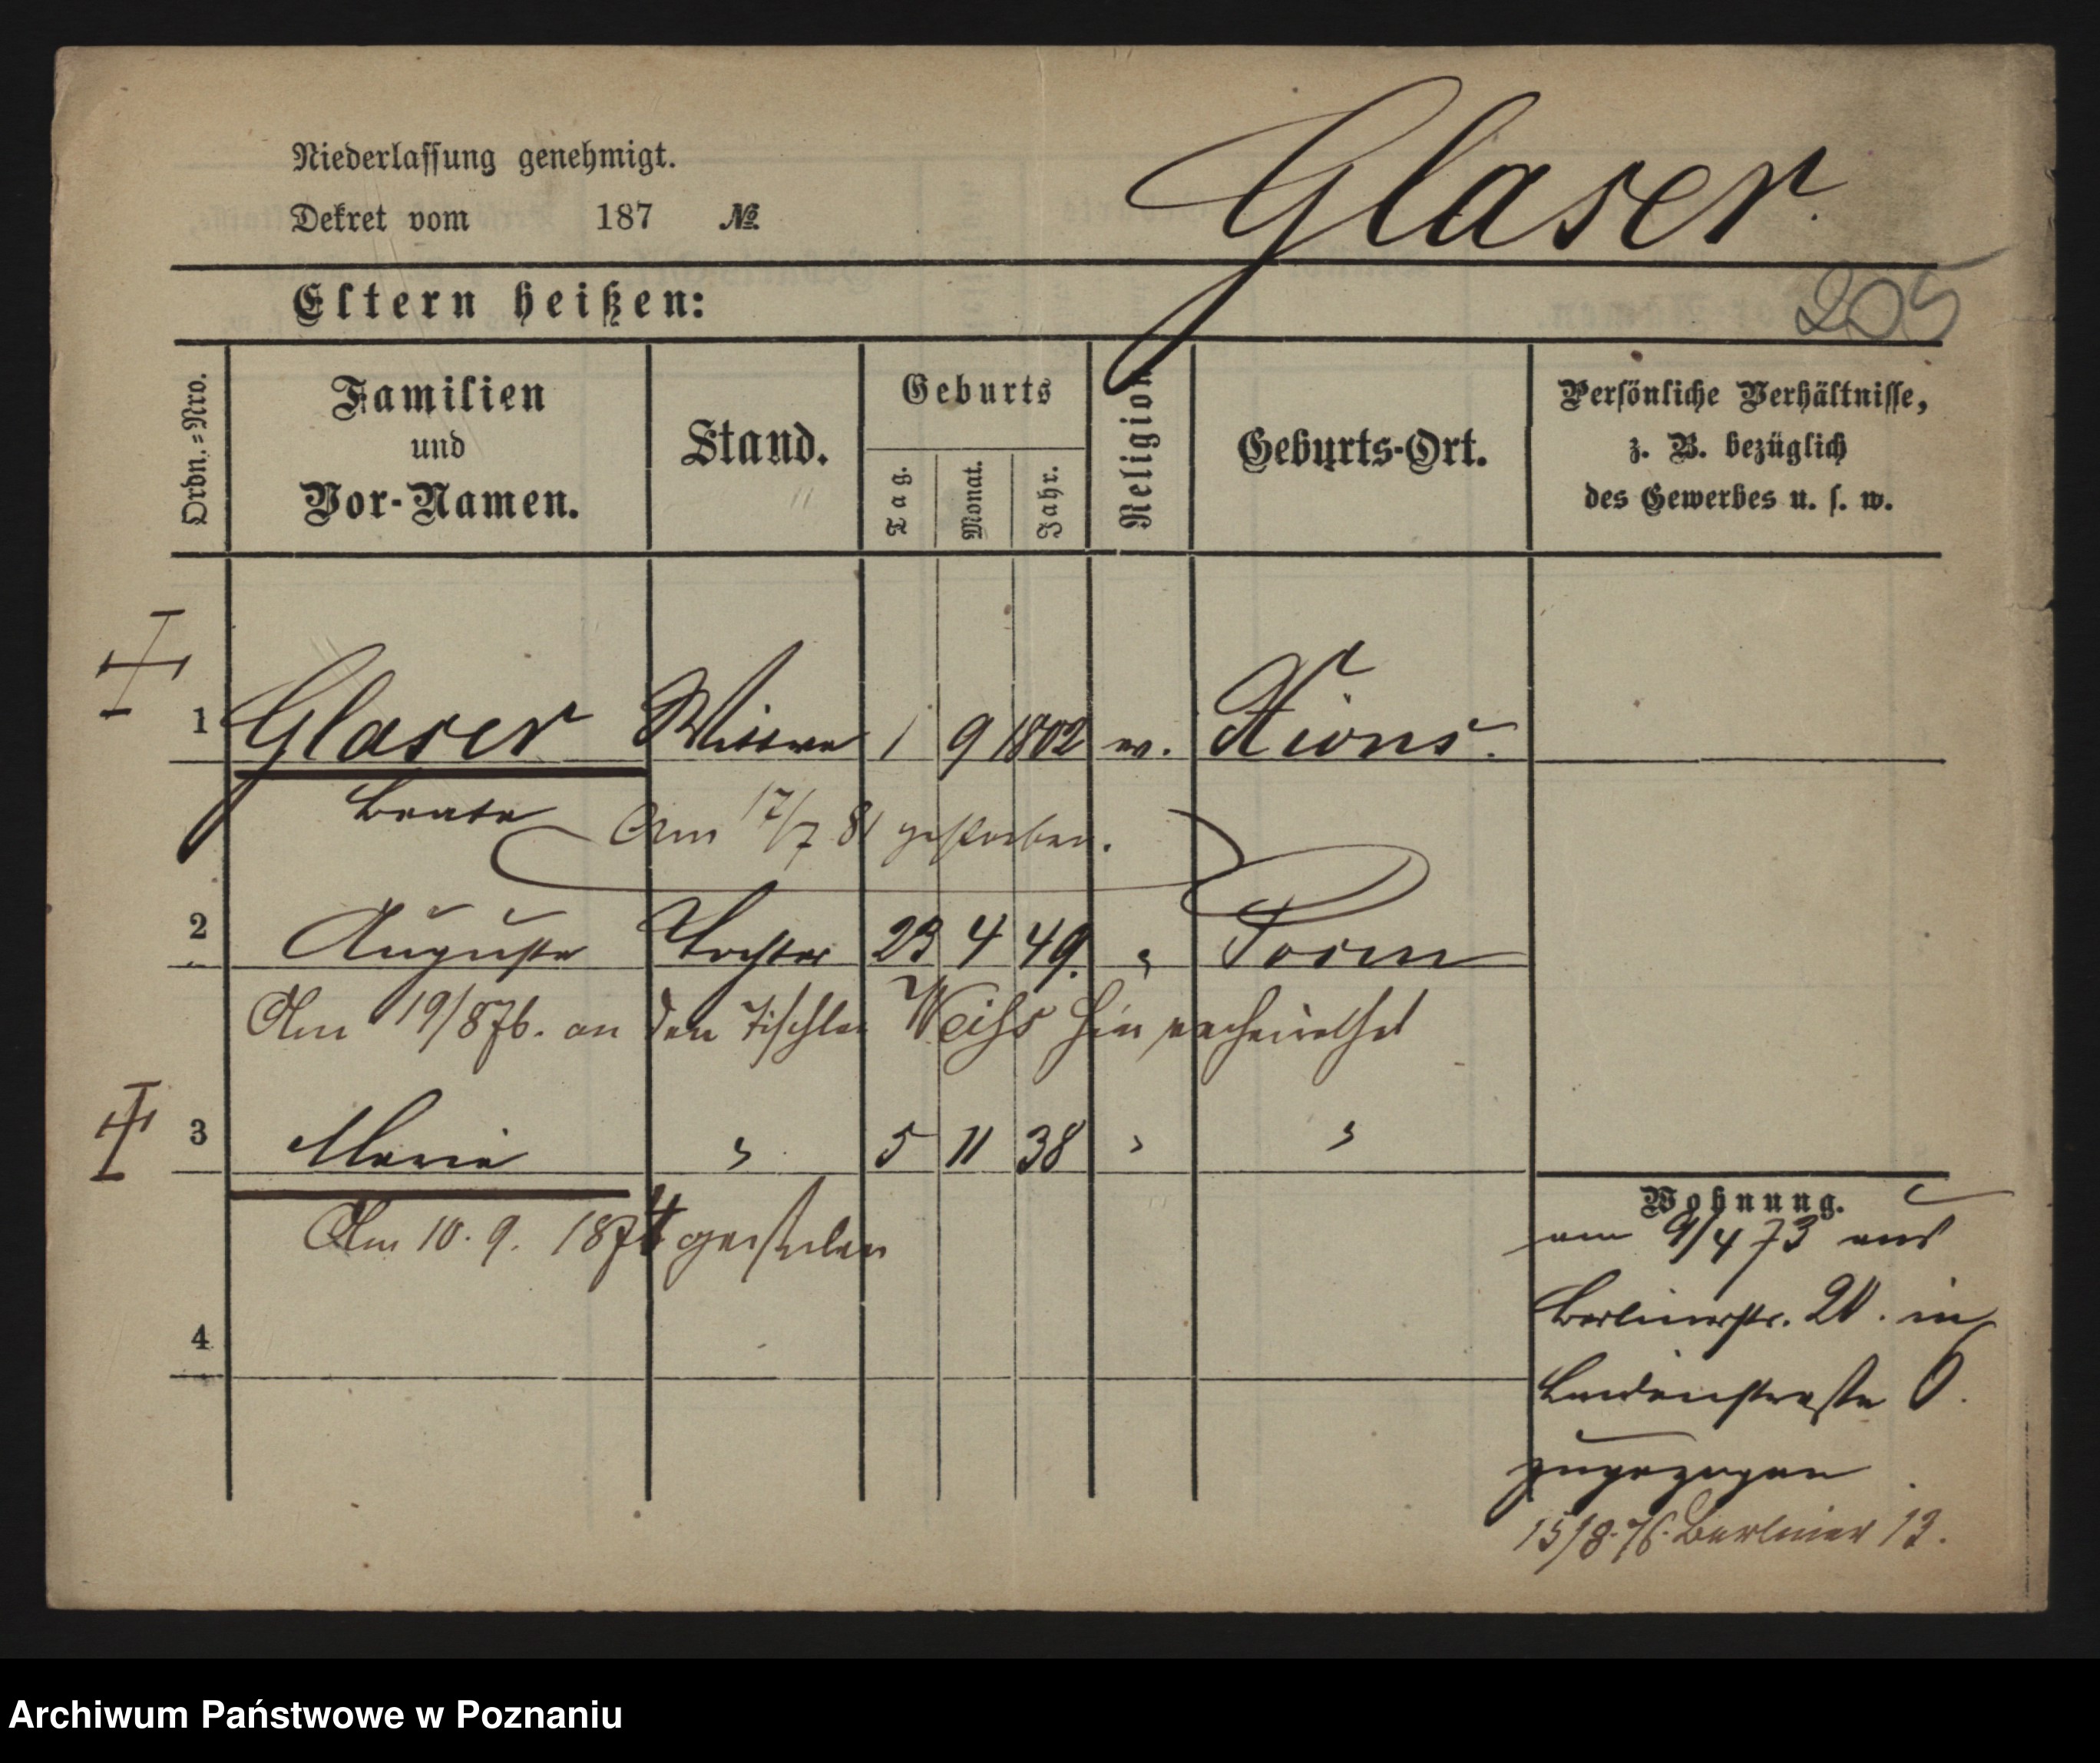 Niederlassung genehmigt.
Dekret vom 187 №
Glaser.
205
Eltern heißen:
Ordn.=Nro.
Familien
und
Vor-Namen.
Stand.
Geburts
Tag.
Monat.
Jahr.
Religion
Geburts-Ort.
Persönliche Verhältnisse,
z. B. bezüglich
des Gewerbes u. s. w.
1 Glaser Wittwe 1 9 1802 Xions.
Beate
Am 17/7 81 gestorben.
2 Auguste Tochter 23 4 49. Posen
Am 19/876. an den Tischler Weihs hier verheirathet
3 Marie " 5 11 38 " "
Am 10. 9. 1874 gestorben
4
Wohnung.
am 9/4 73 aus
Berlinerstr. 20. in
Lindenstraße 6.
zugezogen
15/8.76. Berliner 13.
Archiwum Państwowe w Poznaniu